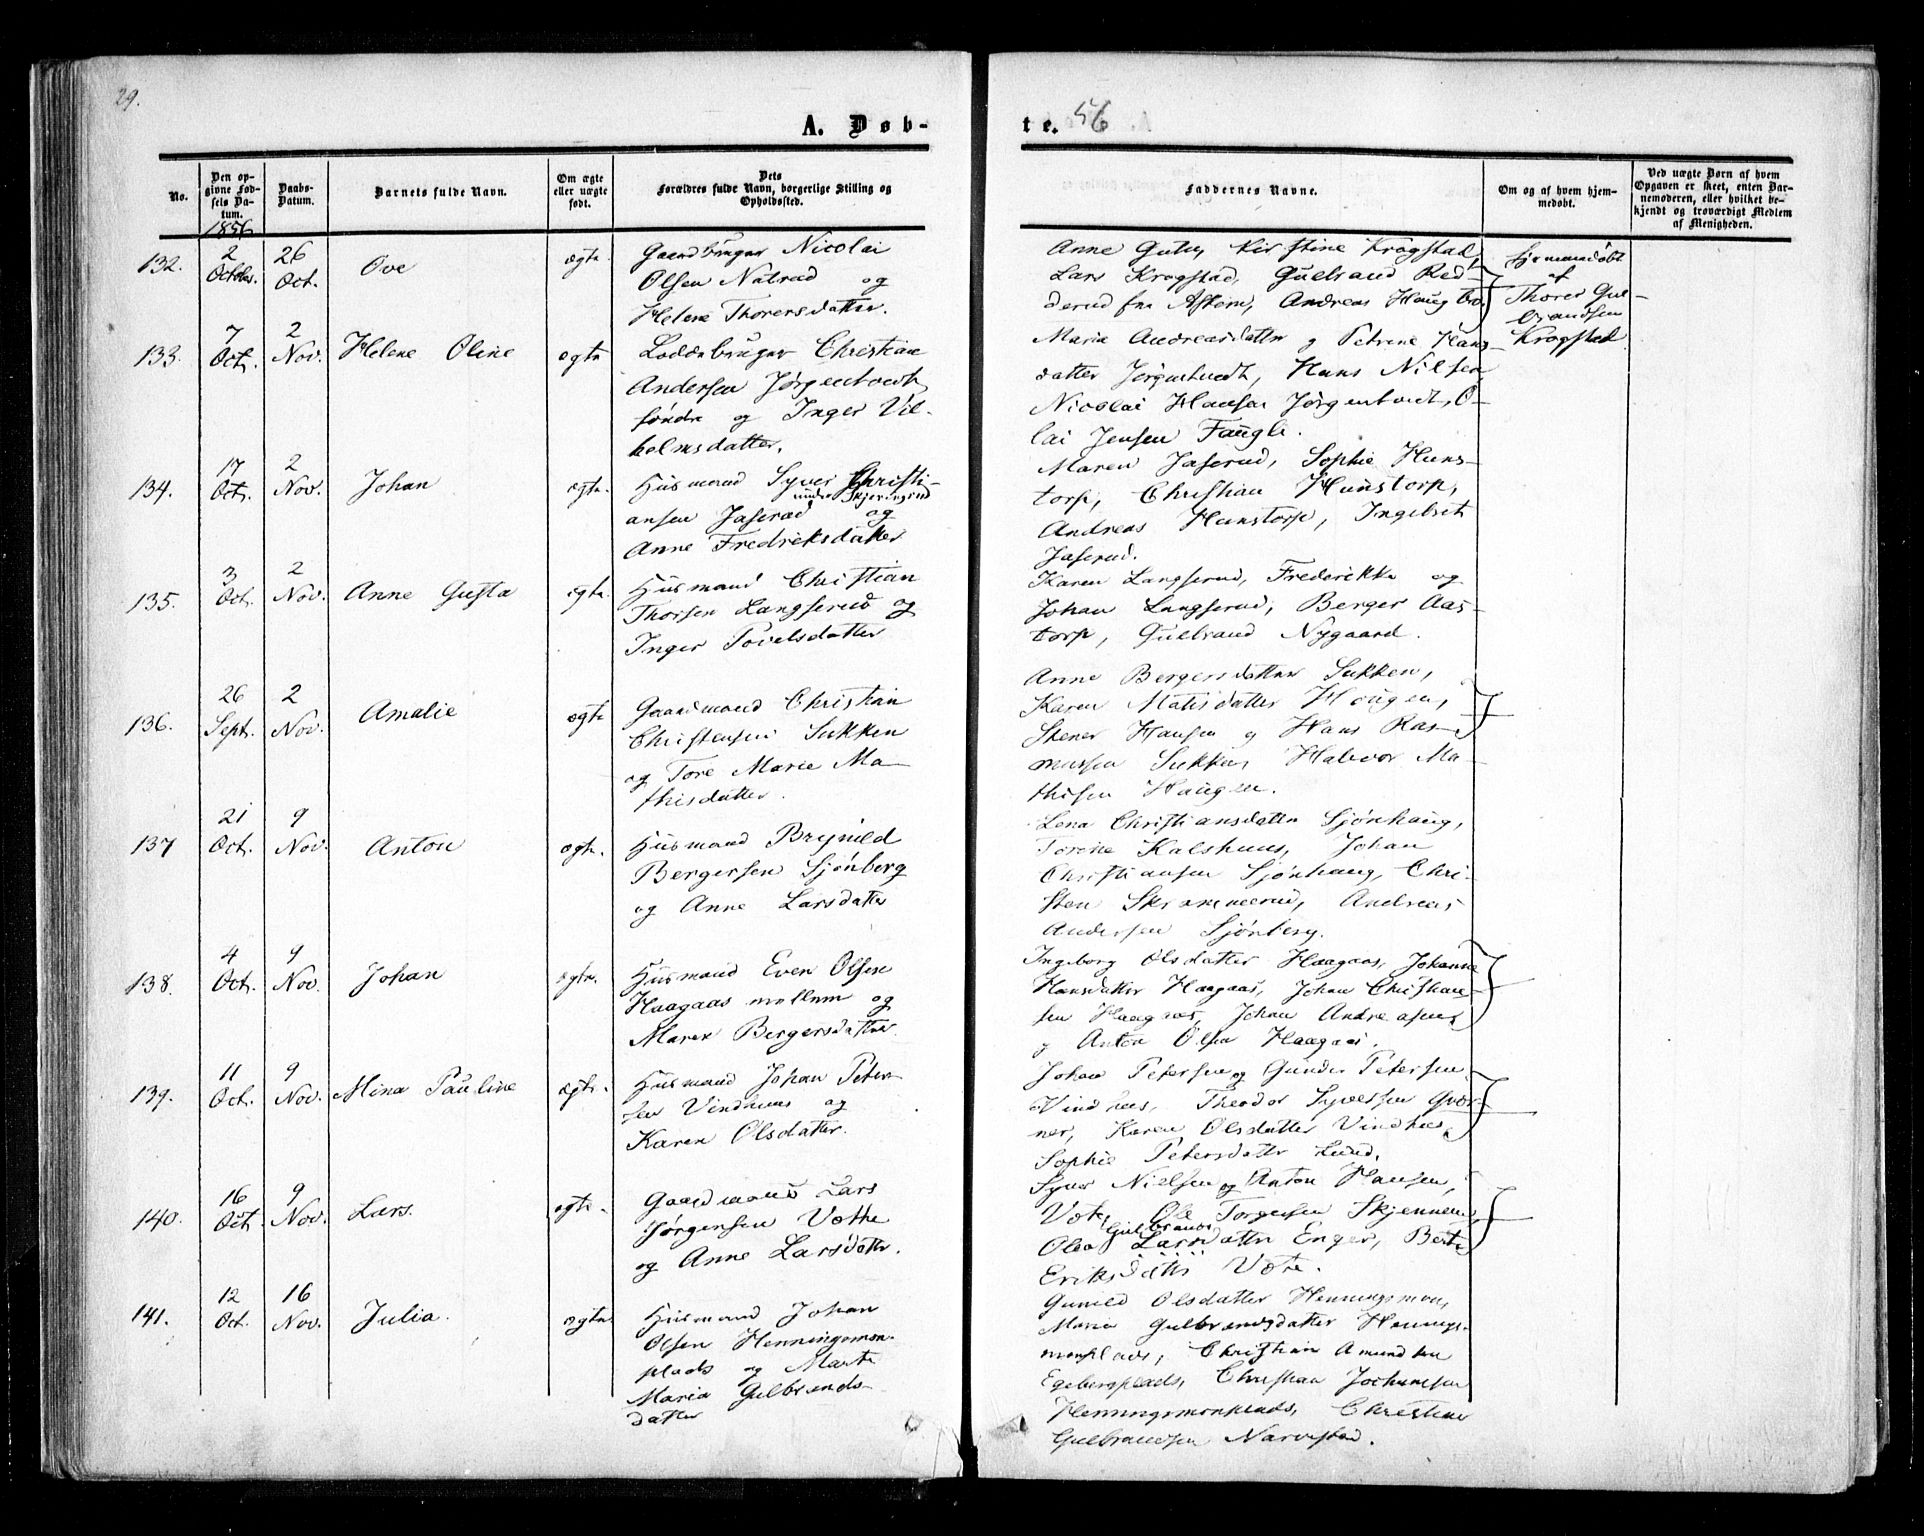 29.
A. Døb-
te. 56
No.
Den op-
givne Fød-
sels Da-
tum.
Daabs-
Datum.
Barnets fulde Navn.
Om ægte
eller uægte
født.
Dets
Forældres fulde Navn, borgerlige Stilling og
Opholdssted.
Faddernes Navne.
Om og af hvem hjem-
medøbt.
Ved uægte Børn af hvem
Opgaven er skeet, enten Bar-
nemoderen, eller hvilket be-
kjendt og troværdigt Medlem
af Menigheden.
1856
132. 2 October. 26 Oct. Ove ægte
Gaardbruger Nicolai
Olsen Natrud og
Helene Thorersdatter.
Anne Kirstine Krogstad,
Lars Krogstad, Gulbrand Red-
derud fra Askim, Andreas Haugbro.
hjemmedøbt
af
Thorer Gul-
brandsen
Krogstad
133. 7 Oct. 2 Nov. Helene Oline ægte
Loddebruger Christian
Andersen Jørgentvedt
søndre og Inger Vil-
helmsdatter.
Maria Andreasdatter og Petrine Hans-
datter Jørgentvedt, Hans Nilsen
Nicolai Hansen Jørgentvedt, O-
lai Jensen Faugli.
134. 17 Oct. 2 Nov. Johan ægte
Husmand Syver Christi-
under Skjerringrud
ansen Jaserud og
Anne Fredriksdatter
Maren Jaserud, Sophie Huns-
torp, Christian Hunstorp,
Andreas Hunstorp, Ingebret
Jaserud.
135. 3 Oct. 2 Nov. Anne Gusta ægte
Husmand Christian
Thorsen Langserud og
Inger Povelsdatter
Karen Langserud, Frederikke og
Johan Langserud, Berger Aas-
torp, Gulbrand Nygaard.
136. 26 Sept. 2 Nov. Amalie ægte
Gaardmand Christian
Christensen Sukken
og Tore Marie Ma-
thisdatter.
Anne Bergersdatter Sukken,
Karen Matisdatter Haugen,
Stener Hansen og Hans Ras-
mussen Sukken, Halvor Ma-
thisen Haugen.
137 21 Oct. 9 Nov. Anton ægte.
Husmand Brynild
Bergersen Sjønberg
og Anne Larsdatter
Lena Christiansdatter Sjønhaug,
Torine Kalshuus, Johan
Christiansen Sjønhaug, Chri-
sten Skrammerud, Andreas
Andersen Sjønberg.
138. 4 Oct. 9 Nov. Johan ægte.
Husmand Even Olsen
Haagaas mellem og
Maren Bergersdatter
Ingeborg Olsdatter Haagaas, Johanne
Hansdatter Haagaas, Johan Christian-
sen Haagaas, Johan Andreasen
og Anton Olsen Haagaas.
139. 11 Oct. 9 Nov. Mina Pauline ægte.
Husmand Johan Peter-
sen Vindhuus og
Karen Olsdatter.
Johan Petersen og Gunder Petersen
Vindhuus, Theodor Syversen Qvær-
ner, Karen Olsdatter Vindhuus,
Sophie Petersdatter Lund.
140. 16 Oct. 9 Nov. Lars. ægte.
Gaardmand Lars
Jørgensen Vøthe
og Anne Larsdatter.
Syver Nielsen og Anton Hansen,
Vote, Ole Torgersen Skjennem
Gulbrands
Olea Larsdatter Enger, Berte
Eriksdatter Vøte.
141. 12 Oct. 16 Nov. Julia. ægte
Husmand Johan
Olsen Henningsmon-
plads og Marte
Maria Gulbrands-
datter
Gunild Olsdatter Henningsmon,
Maria Gulbrandsdatter Hennings-
monplads, Christian Amundsen
Egebergplads, Christian Jochumsen
Henningsmonplads, Christian
Gulbrandsen Narvestad.